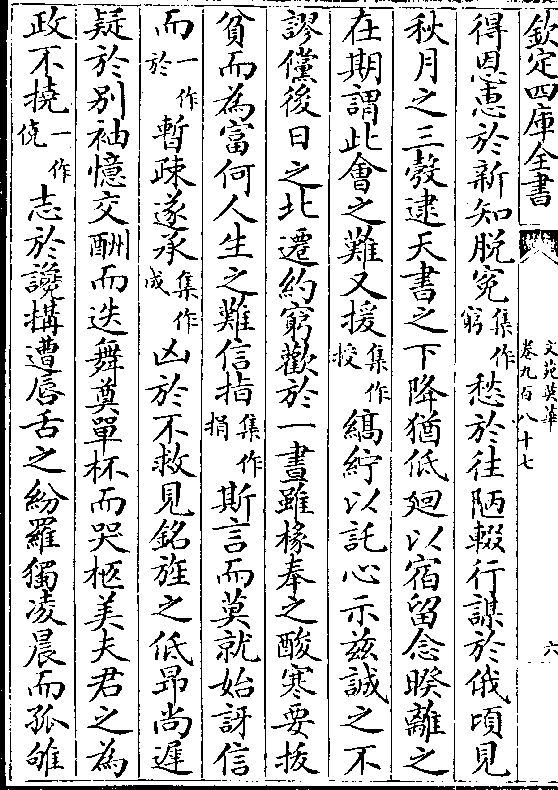 欽定四庫全書
文苑英華
卷九百八十七
六
得恩惠於新知脱寃集作窮愁於往陋輟行謀於俄頃見
秋月之三彀逮天書之下降猶低廻以宿留念暌離之
在期謂此會之難又援集作投縞紵以託心示兹誠之不
謬儻後日之北遷約窮歡於一晝雖椽奉之酸寒要拔
貧而為富何人生之難信指集作捐斯言而莫就始訝信
而一作於暫疎遂承集作成凶於不救見銘旌之低昻尚遲
疑於别袖憶交酬而迭舞奠單杯而哭柩美夫君之為
政不撓一作僥志於讒搆遭唇舌之紛羅獨凌晨而孤雊